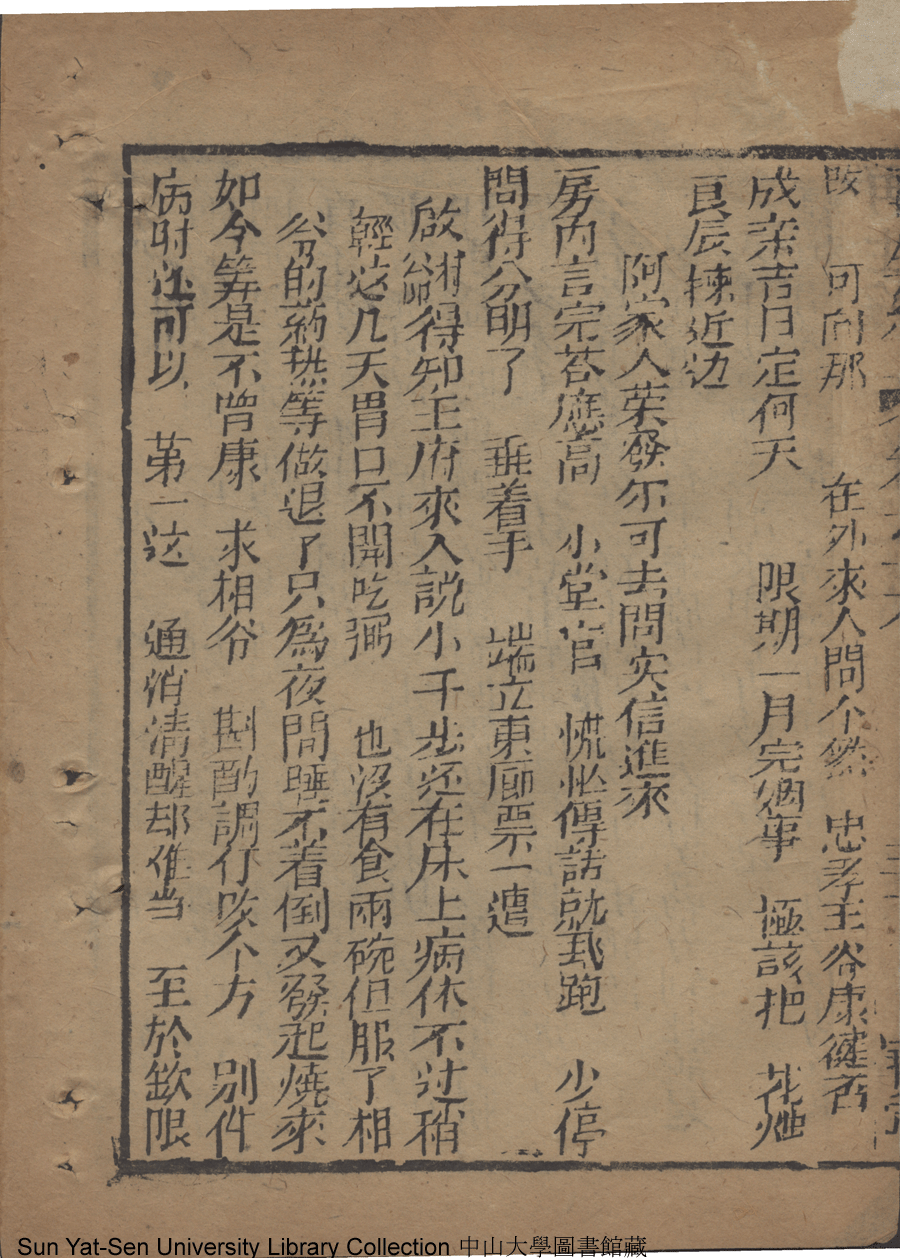 可向那 在外來人問个然 忠孝王爷康健否
成亲吉日定何天 限期一月完姻事 極該把 花烛
良辰揀近边
阿家人荣發尔可去問实信進來
房内言完荅應高 小堂官 慌忙傳話就越跑 少停
問得分明了 垂着手 端立東廊禀一遭
啟謝爺得知王府來人説小千歩还在床上病体不过稍
輕这几天胃口不開吃粥 也沒有食兩碗但服了相
爷的葯热等做退了只為夜間睡不着倒又發起燒來
如今筭是不曽康 求相爷 斟酌調仃咳个方 别件
病时还可以 苐一这 通消清醒却难当 至於欽限